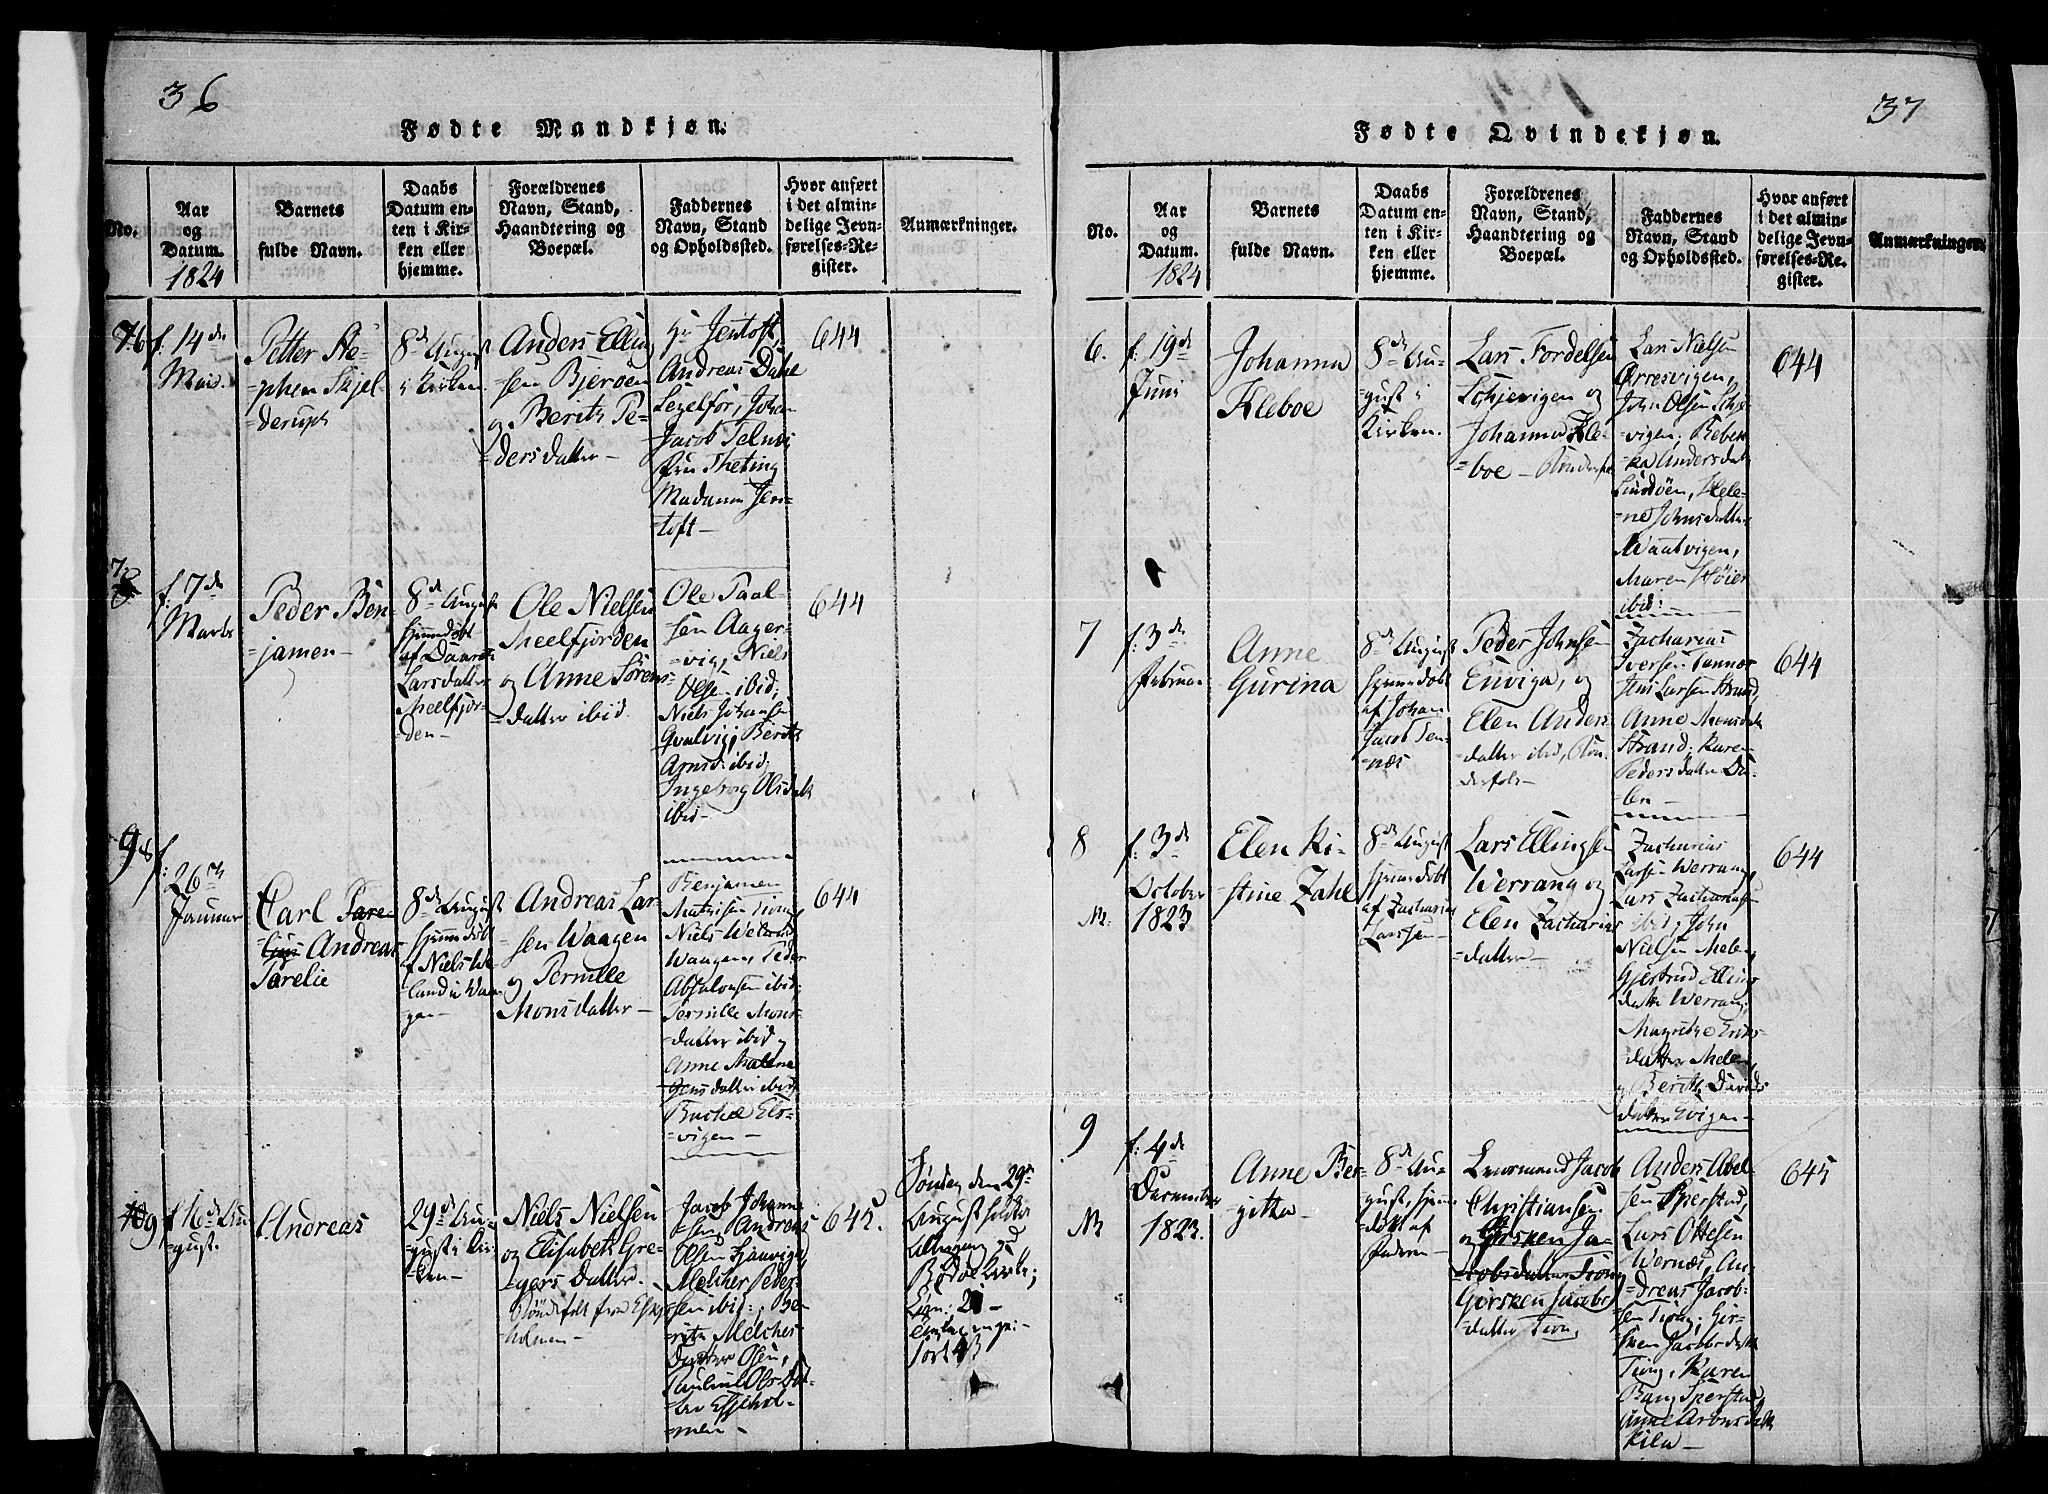 36
Fødte Mandkjøn.
No.
Aar
og
Datum.
1824
Barnets
fulde Navn.
Daabs
Datum en-
ten i Kir-
ken eller
hjemme.
Forældrenes
Navn, Stand,
Haandtering og
Boepæl.
Faddernes
Navn, Stand
og Opholdssted.
Hvor anført
i det almin-
delige Jevn-
førelses-Re-
gister.
Anmærkninger.
f: 14de
Mai
Petter Ste-
=phen Skjel-
=derup
8de August
i Kirken
Anders Elling
sen Bjerøen
og Berith Pe-
=dersdatter-
Hr Jentoft,
Andreas Dahl
Segelfor, Johan
Jacob Telnæs
fru Theting
Madamm Jen-
=toft-
644
f: 7de
Marts
Peder Ben-
=jamen-
8de August
hjemdøbt
af
Larsdatter
Meelfjor-
=den-
Ole Nielsen
Meelfjorden
og Anne Sørens-
=datter ibid.
Ole Paal-
sen Aager-
=vig, Niels
Olsen ibid;
Niels Johansen
Qvalvig, Berith
Arnsd: ibid;
Ingeborg Olsdatt
ibid-
644
f:
26de
Januar
Carl Pare-
=lius Andreas
Parelie
8de August
hjemdøbt
af Niels We-
=land i Waa-
gen-
Andreas Lar-
=sen Waagen
og Pernille
Monsdatter-
Benjamen
Mathisen
Niels Weland
Waagen, Peder
Absalonsen ibid:
Pernille Mons-
=datter ibid
Anne Malena
Jensdatter ibid
Rachel Els-
=vigen-
644
9
f 16de Au-
=gust.
Andreas
29de Au-
=gust i Kir-
=ken-
Niels Nielsen
og Elisabeth Gre-
=gers Datter.
Jacob Johanne-
=sen, Andreas
Olsen
Melcher Peder-
sen ibid; Be-
=rith Melchers
Datter Olsen,
Olsdat-
=ter
men-
645.
Søndag den 29de
August
Bodøe Kirke;
37
Fødte Qvindekjøn.
No.
Aar
og
Datum.
1824
Barnets
fulde Navn.
Daabs
Datum en-
ten i Kir-
ken eller
hjemme.
Forældrenes
Navn, Stand,
Haandtering og
Boepæl.
Faddernes
Navn, Stand
og Opholdssted.
Hvor anført
i det almin-
delige Jevn-
førelses-Re-
gister.
Anmærkninger.
6.
f: 19de
Juni
Johanna
Kleboe
8de Au-
=gust i
Kirken.
Lars Fordelsen
Schjevigen og
Johanna Kle-
=boe-
Lars Nielsen
Ørresvigen,
John Olsen Schje-
=vigen, Reben-
=ka Andersdat
Lundøen, Hele-
=ne Johnsdatter
Waatvigen,
Maren Høier
ibid:
644
7
f: 3de
Februar
Anne
Gurina
8de August
hjemdøbt
af Johan
Jacob Ten-
=næs
Peder Johnsen
Enviga, og
Elen Anders
=datter ibid,
Zacharias
Iversen
Jens Larsen Strand,
Anne Monsdatt
Strand, Karen
Pedersdatter Da-
=len-
644
8
f: 3de
October
1823
Elen Ki-
=stine Zahl
8de August
hjemdøbt
af Zacharias
Larsen-
Lars Ellingsen
Werrang og
Elen Zacharias
=datter-
Zacharias
Larsen Werrang,
Lars Zachariasen
ibid; John
Nielsen Melen,
Gjertrud Ellings
datt Werrang,
Magrethe Eriks-
=datter Melen
og Berith Davids
datter Evigen-
644
9
f: 4de
December
1823.
Anne Ber-
=gitta-
8de Au-
=gust, hjem-
=døbt af
Faderen-
Lensmand Jacob
Christiansen
og Girsken Ja-
=cobsdatter
Girsken Jacobs
datter
Anders Abel-
=sen Sperstad,
Lars Ottesen
Wernæs, An-
=dreas Jacob-
=sen Gir-
sken Jacobsdatt
Karen
Bang Sperstad,
Anne Aronsdatt
Kila-
645